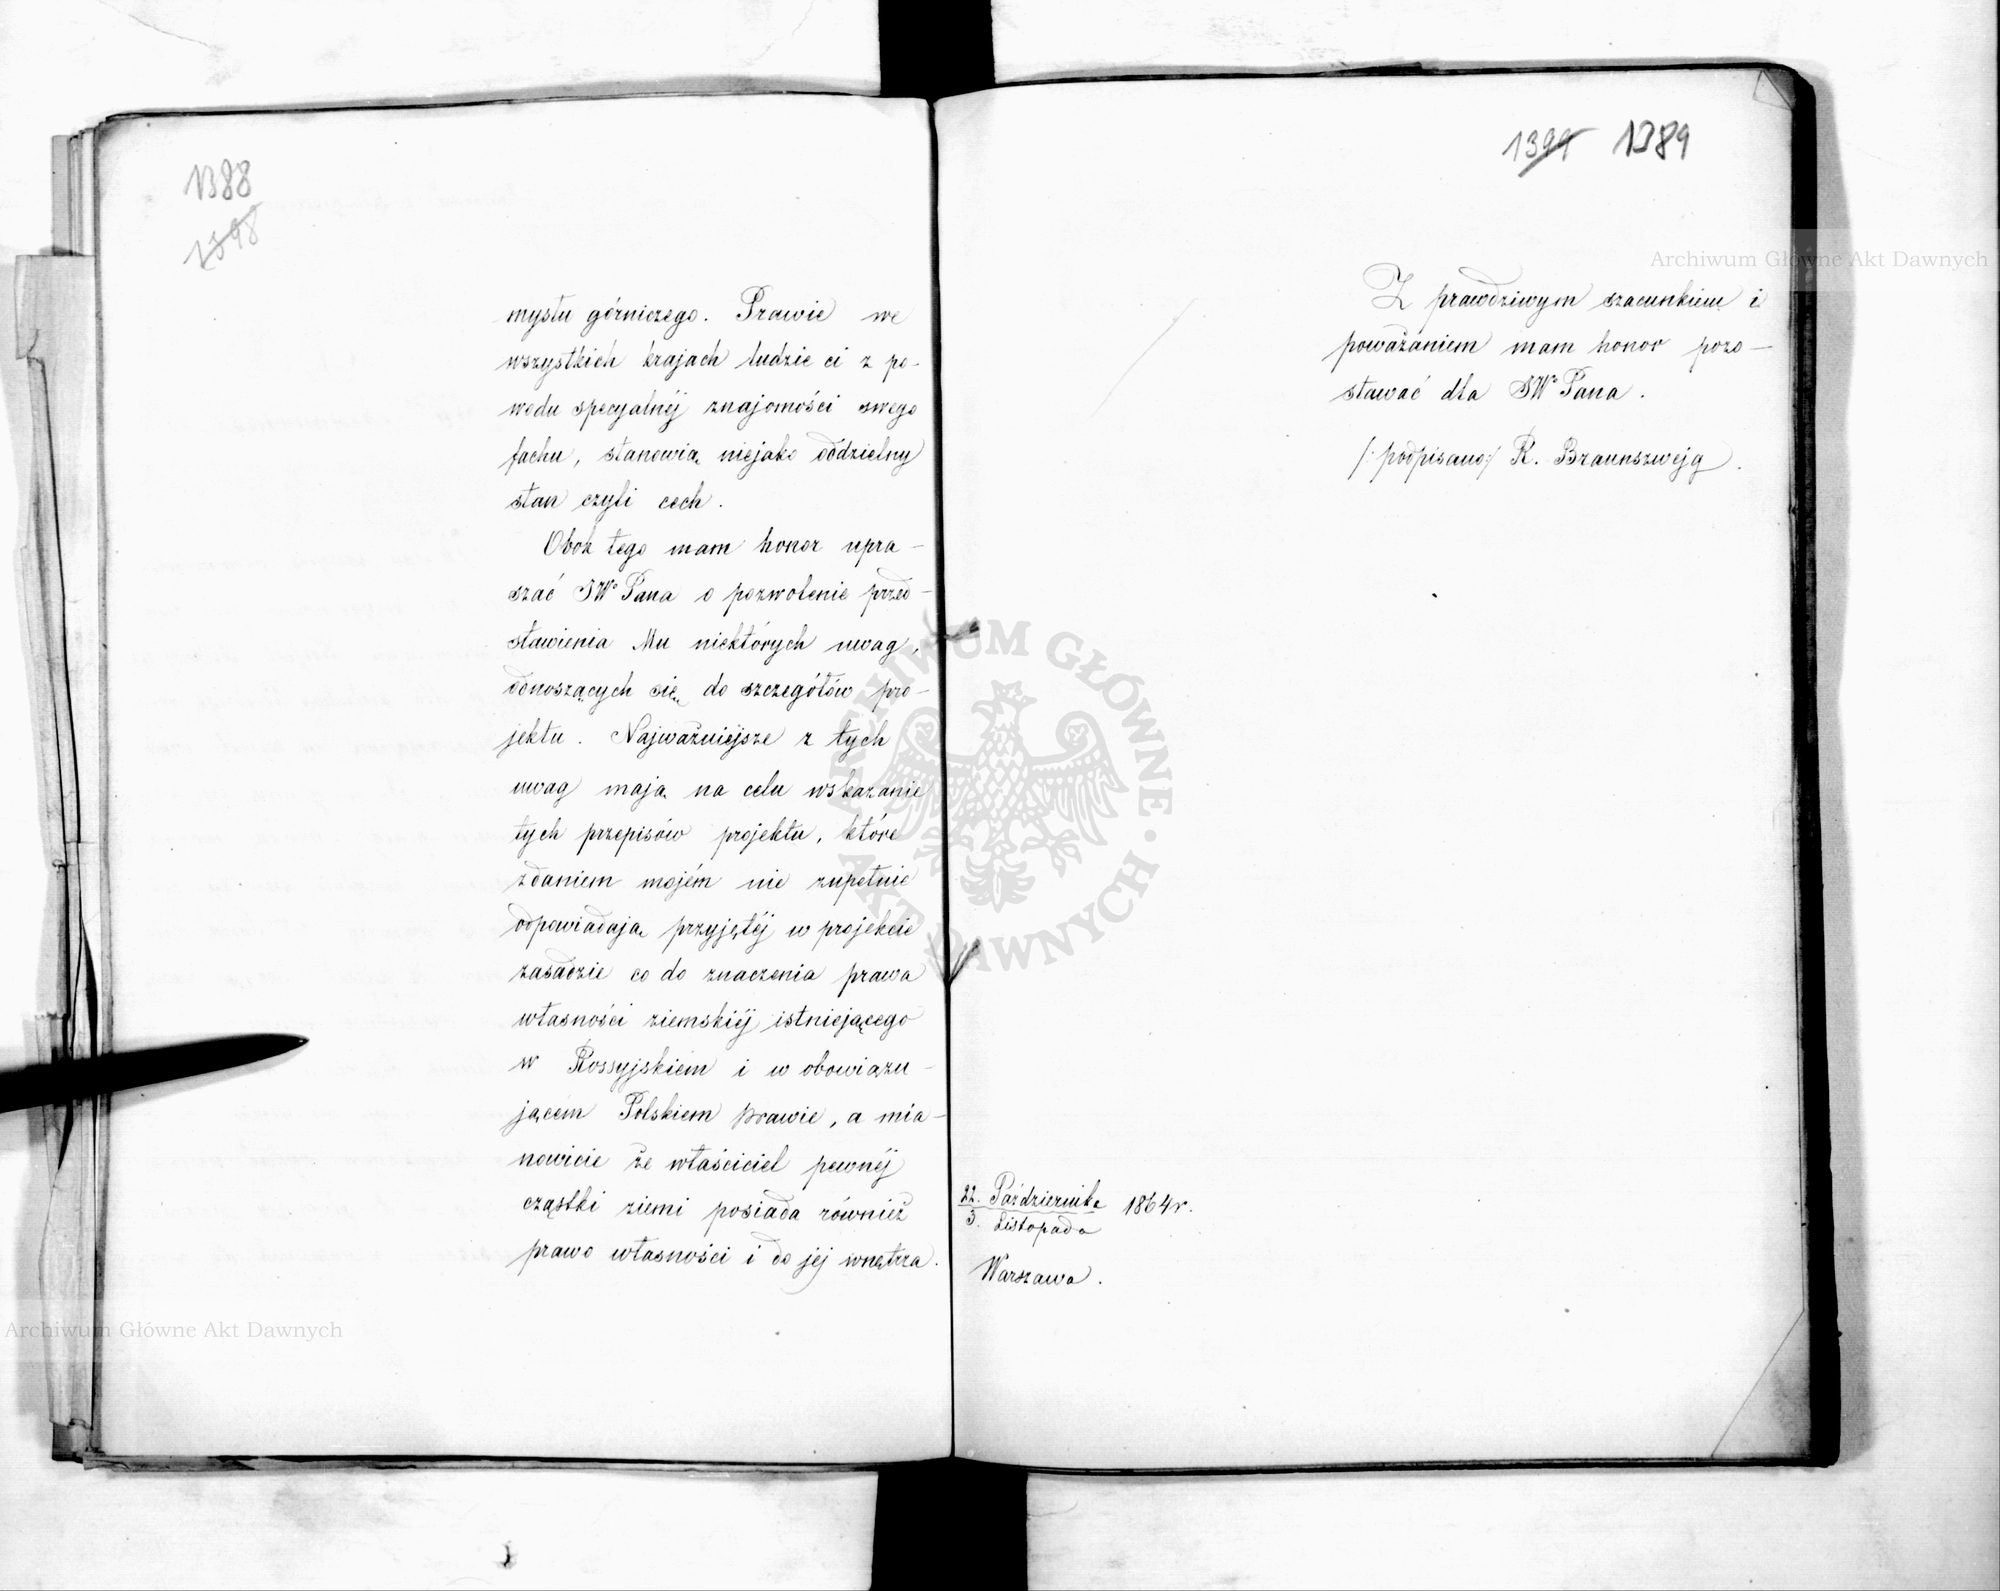 1388
1398
mysłu górniczego. Prawie we
wszystkich krajach ludzie ci z po-
wodu specyalnéj znajomości swego
fachu, stanowią niejako oddzielny
stan czyli cech.
Obok tego mam honor upra-
szać JWo Pana o pozwolenie przed-
stawienia Mu niektórych uwag,
odnoszących się do szczegółów pro-
jektu. Najważniejsze z tych
uwag mają na celu wskazanie
tych przepisów projektu, które
zdaniem mojém nie zupełnie
odpowiadają przyjętéj w projekcie
zasadzie co do znaczenia prawa
własności ziemskiéj istniejącego
w Rossyjskiem i w obowiązu-
jącem Polskiem prawie, a mia-
nowicie że właściciel pewnéj
cząstki ziemi posiada również
prawo własności i do jej wnętrza.
1399 1389
Z prawdziwym szacunkiem i
poważaniem mam honor pozo-
stawać dla JWo Pana.
/:podpisano:/ R. Braunszwejg.
22. Października
3. Listopada
1864 r.
Warszawa.
Archiwum Główne Akt Dawnych
ARCHIWUM GŁÓWNE AKT DAWNYCH
Archiwum Główne Akt Dawnych